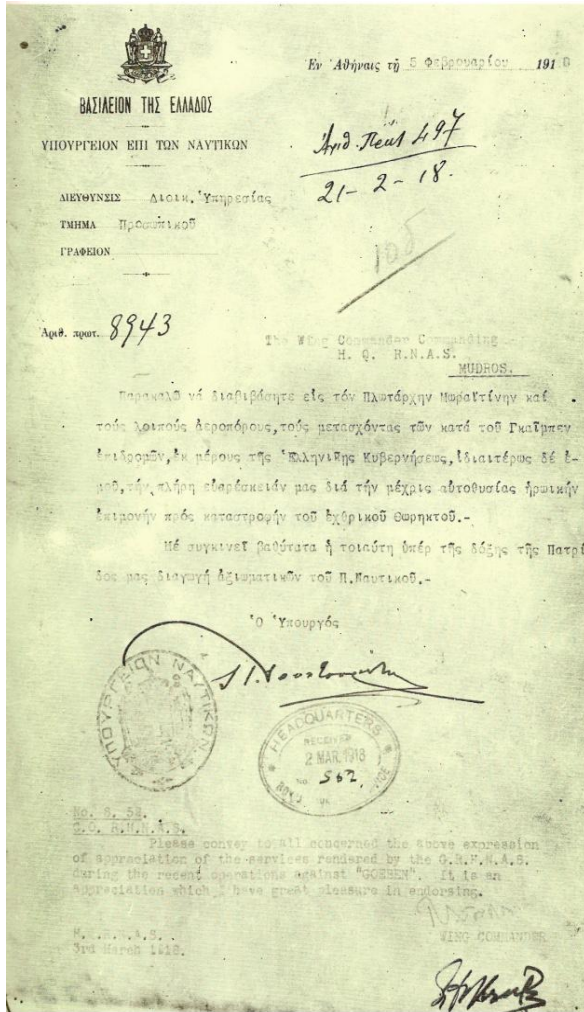 Ἐν Ἀθήναις τῇ 5 Φεβρουαρίου 191
ΒΑΣΙΛΕΙΟΝ ΤΗΣ ΕΛΛΑΔΟΣ
ΥΠΟΥΡΓΕΙΟΝ ΕΠΙ ΤΩΝ ΝΑΥΤΙΚΩΝ
497
21-2-18.
ΔΙΕΥΘΥΝΣΙΣ Διοικ. Ὑπηρεσίας
ΤΜΗΜΑ Προσωπικοῦ
ΓΡΑΦΕΙΟΝ
Ἀριθ. πρωτ. 8943
The Wing Commander Commanding
H. Q. R.N.A.S.
MUDROS.
Παρακαλῶ νά διαβιβάσητε εἰς τόν Πλωτάρχην Μωραϊτίνην καί
τούς λοιπούς ἀεροπόρους,τούς μετασχόντας τῶν κατά τοῦ Γκαῖμπεν
ἐπιδρομῶν,ἐκ μέρους τῆς Ἑλληνικῆς Κυβερνήσεως,ἰδιαιτέρως δέ ἐ-
μοῦ,τήν πλήρη εὐαρέσκειάν μας διά τήν μέχρις αὐτοθυσίας ἡρωικήν
ἐπιμονήν πρός καταστροφήν τοῦ ἐχθρικοῦ Θωρηκτοῦ.-
Μέ συγκινεῖ βαθύτατα ἡ τοιαύτη ὑπέρ τῆς δόξης τῆς Πατρί
δος μας διαγωγή ἀξιωματικῶν τοῦ Π.Ναυτικοῦ.-
Ὁ Ὑπουργός
ΥΠΟΥΡΓΕΙΟΝ ΝΑΥΤΙΚΩΝ
HEADQUARTERS
RECEIVED
2 MAR.1918
No. 562
No. S. 52.
Please convey to all concerned the above expression
of appreciation of the services rendered by the G.R.F.N.A.S.
during the recent operations against "GOEBEN". It is an
appreciation which I have great pleasure in endorsing.
WING COMMANDER
3rd March 1918.